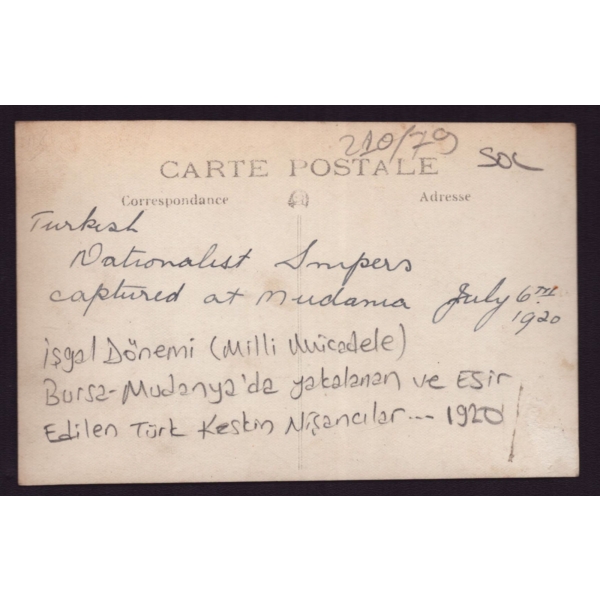 210/79
SOL
CARTE POSTALE
Correspondance
Adresse
Turkish
Nationalist Snipers
captured at Mudania July 6TH
1920
işgal Dönemi (Milli Mücadele)
Bursa-Mudanya'da yakalanan ve Esir
Edilen Türk Keskin Nişancılar... 1920